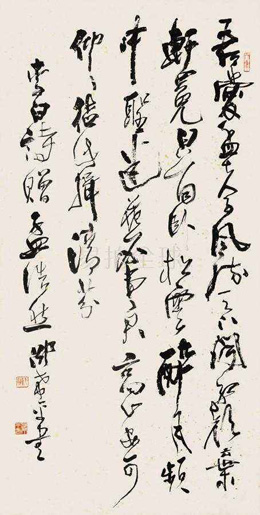 吾愛孟夫子風流天下聞紅顏棄
軒冕白首卧松雲醉月頻
中聖迷花不事君高山安可
仰徒此揖清芬
李白詩贈孟浩然